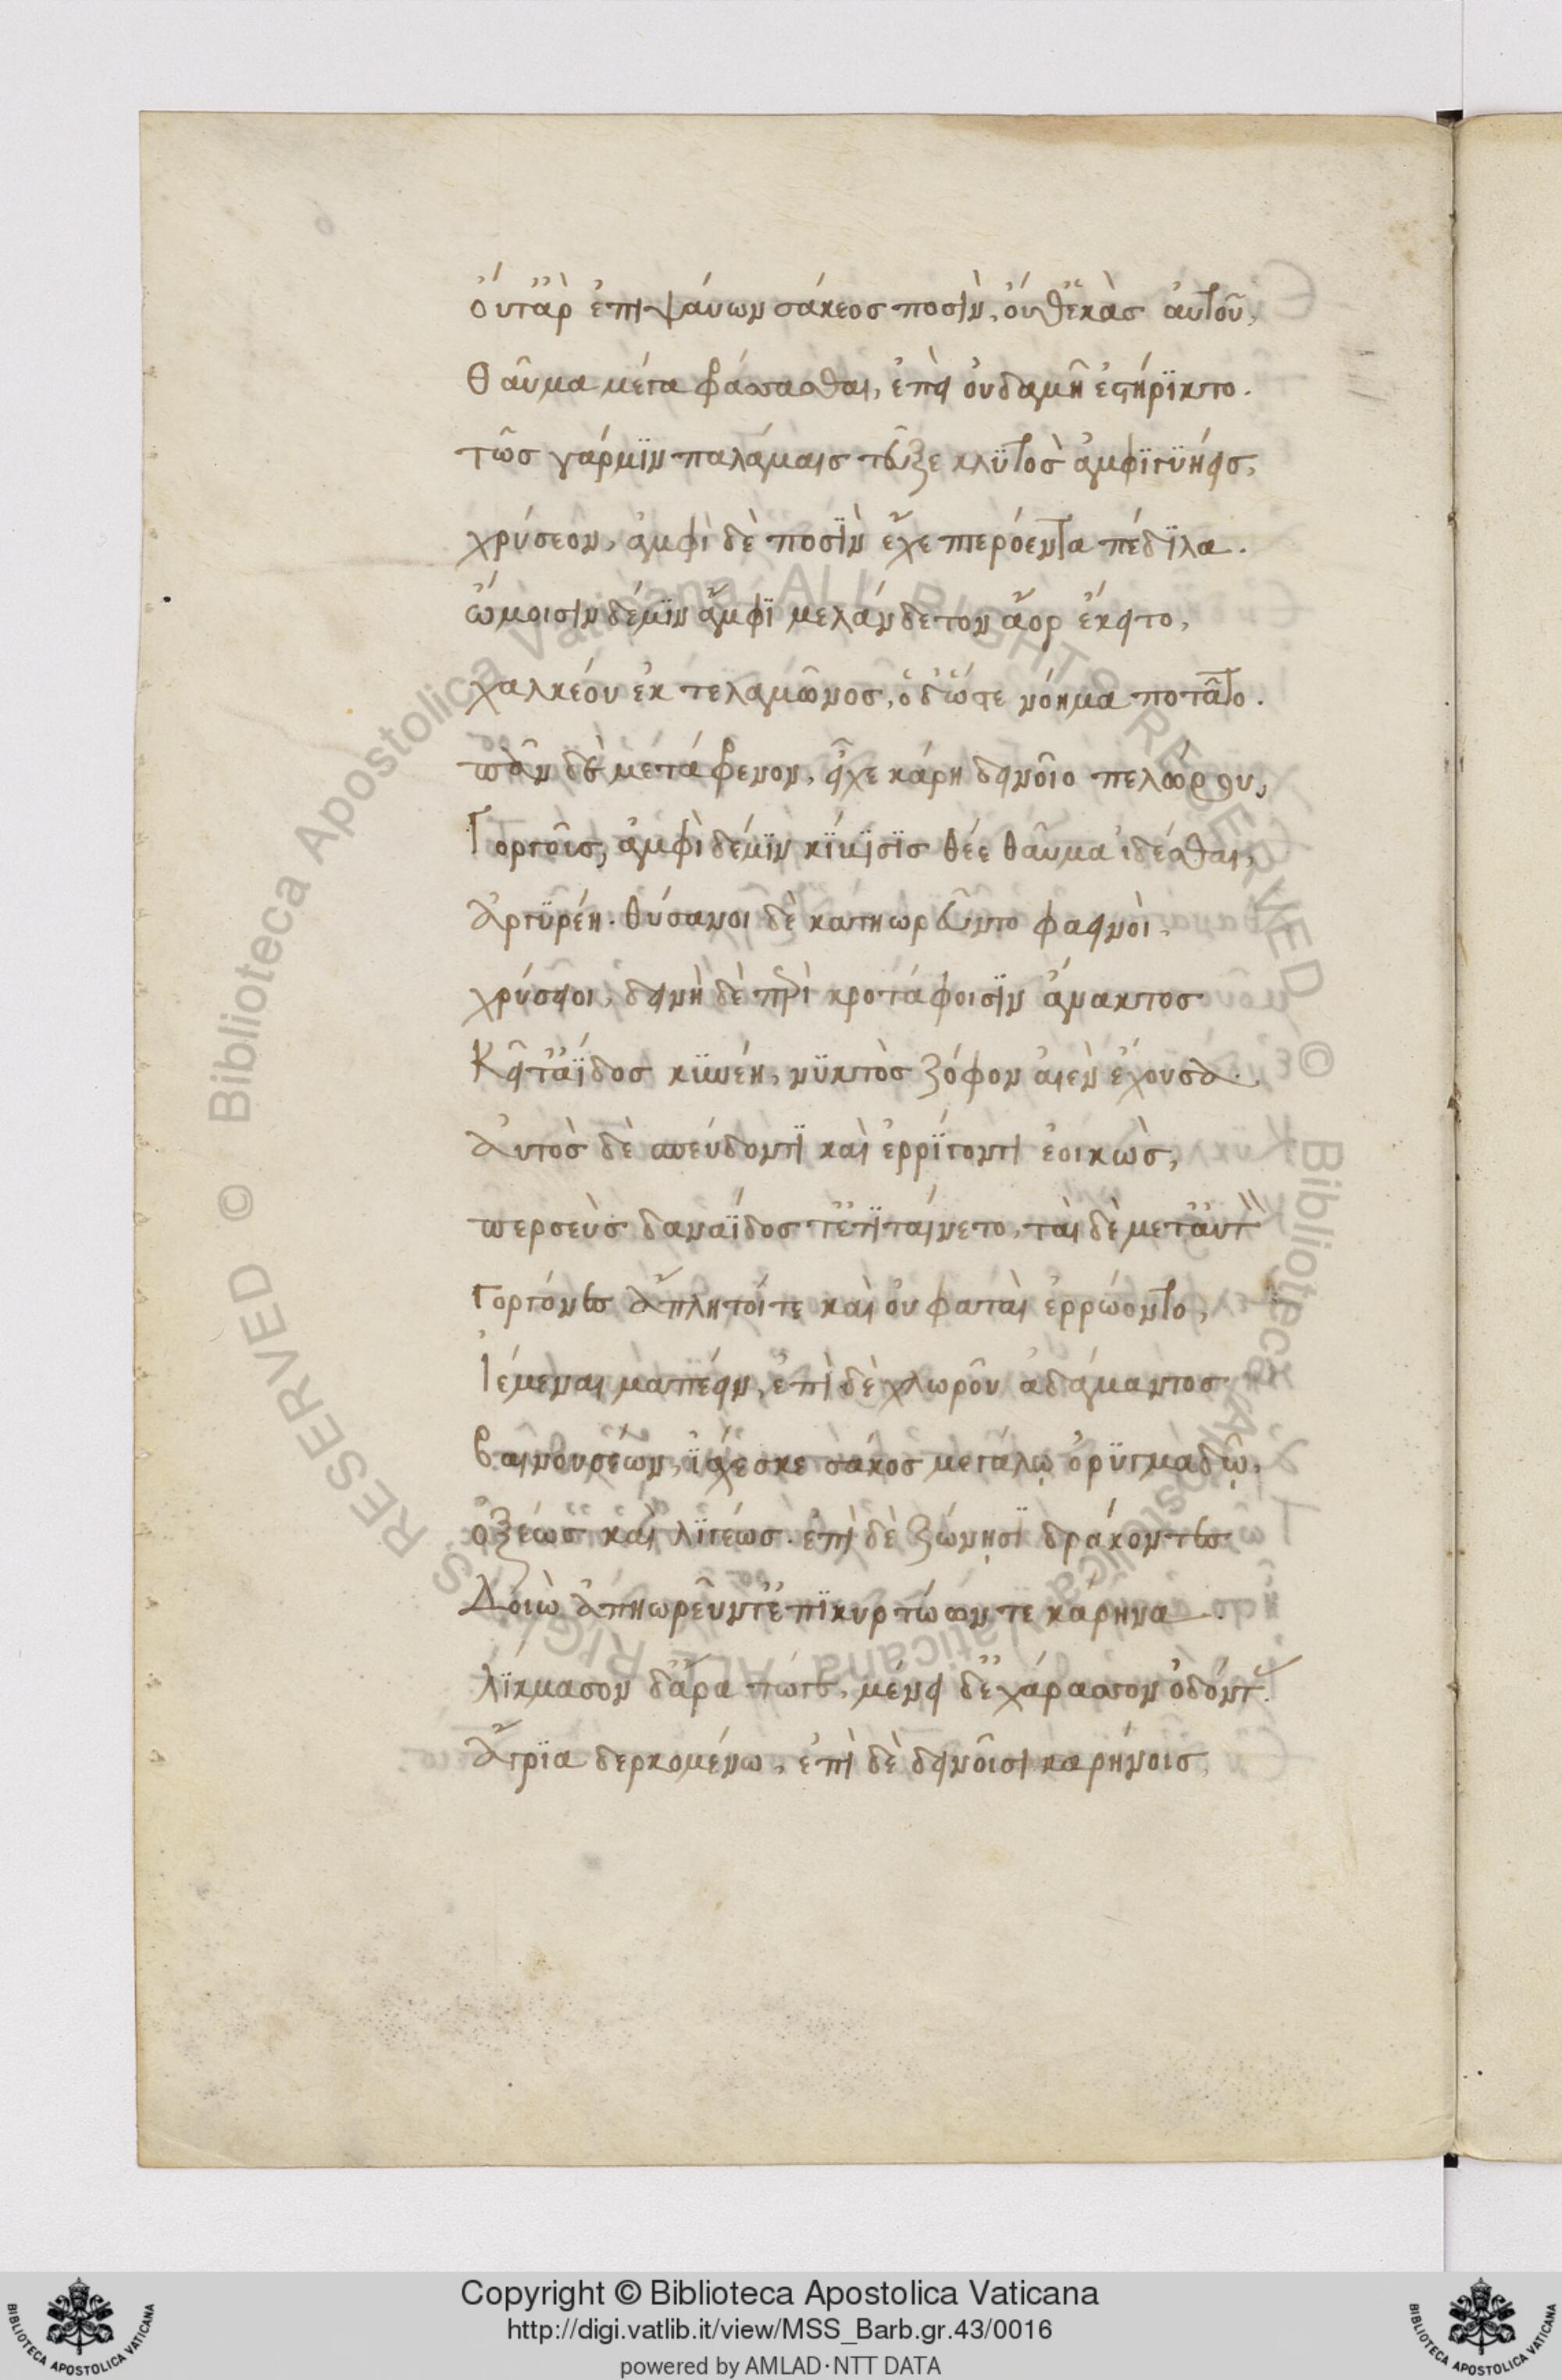 ὄυτἂρ ἐπιψάυων σάκεος ποσὶν, ὄυθἒκὰς ἀυτοῦ,
Θαῦμα μέγα φράσσασθαι, ἐπεὶ ὀυδαμῆ ἐστήρϊκτο.
τῶς γάρμϊν παλάμαις τεῦξε κλϋτὸς ἀμφϊγϋήεις,
χρύσεον, ἀμφὶ δὲ ποσῒν ἔχε πτερόεντα πέδϊλα.
ὤμοισιν δέμϊν ἄμφϊ μελάνδετον ἄορ ἔκειτο,
χαλκέου ἐκ τελαμῶνος, ὁ δ' ὥστε νόημα ποτᾶτο.
πᾶν δὲ μετάφρενον, εἶχε κάρη δεινοῖο πελώρου,
Γοργοῦς, ἀμφὶ δέμϊν κΐϊησϊς θέε θαῦμα ἰδέσθαι,
ἀργϋρέη. θύσανοι δὲ κατηωρεῦντο φαεινὸι,
χρύσειοι, δεινὴ δὲ περὶ κροτάφοισϊν ἄνακτος
Κεῖτ' ἄϊδος κϋνέη, νϋκτὸς ζόφον ἀιὲν ἔχουσα.
ἀυτὸς δὲ σπεύδοντϊ καὶ ἐρρίγοντι ἐοικὼς,
περσεὺς δαναΐδος τἒτϊτάινετο, τὰι δὲ μετἂυτ
Γοργόνες ἄπλητόι τε καὶ ὀυ φαταὶ ἐρρώοντο,
Ἱέμεναι μαπέειν, ἐπὶ δὲ χλωροῦ ἀδάμαντος
βαινουσέων, ἰάχεσκε σάκος μεγάλῳ ὀρϋγμαδῷ,
ὀξέως καὶ λϊγέως. ἐπὶ δὲ ζώνῃσϊ δράκοντες
Δοιὼ ἀπηωρεῦντ' ἐπϊκυρτώων τε κάρηνα.
λΐκμασον δ' ἄρα τώγε, μένει δ' ἐχάρασσον ὀδόντ.
ἄγρϊα δερκομένω, ἐπὶ δὲ δεινοῖσι καρήνοις,
Biblioteca Apostolica Vaticana ALL RIGHTS RESERVED ©
Biblioteca Apostolica Vaticana ALL RIGHTS RESERVED ©
Copyright © Biblioteca Apostolica Vaticana
http://digi.vatlib.it/view/MSS_Barb.gr.43/0016
powered by AMLAD·NTT DATA
BIBLIOTECA APOSTOLICA VATICANA
BIBLIOTECA APOSTOLICA VATICANA